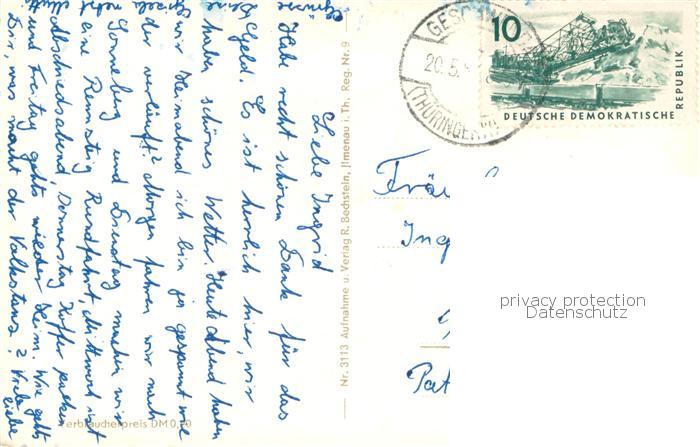 Liebe Ingrid
Habe recht schönen Dank für das
Geld. Es ist herrlich hier, wir
haben schönes Wetter. Heute Abend haben
wir Heimabend ich bin ja gespannt wie
der verläuft? Morgen fahren wir nach
Sonneberg und Dienstag machen wir
eine Rennsteig Rundfahrt Mittwoch ist
Abschiedsabend, Donnerstag Koffer packen
und Freitag gehts wieder Heim. Wie gehts
Dir, was macht der Volkstanz? Viele
liebe
Grüsse
Verbraucherpreis DM 0,20
Nr. 3113 Aufnahme u. Verlag R. Bechstein, Ilmenau i. Th. Reg. Nr. 9
10
DEUTSCHE DEMOKRATISCHE
REPUBLIK
20.5.
(THÜRINGER
Fräu
Ing
privacy protection
Datenschutz